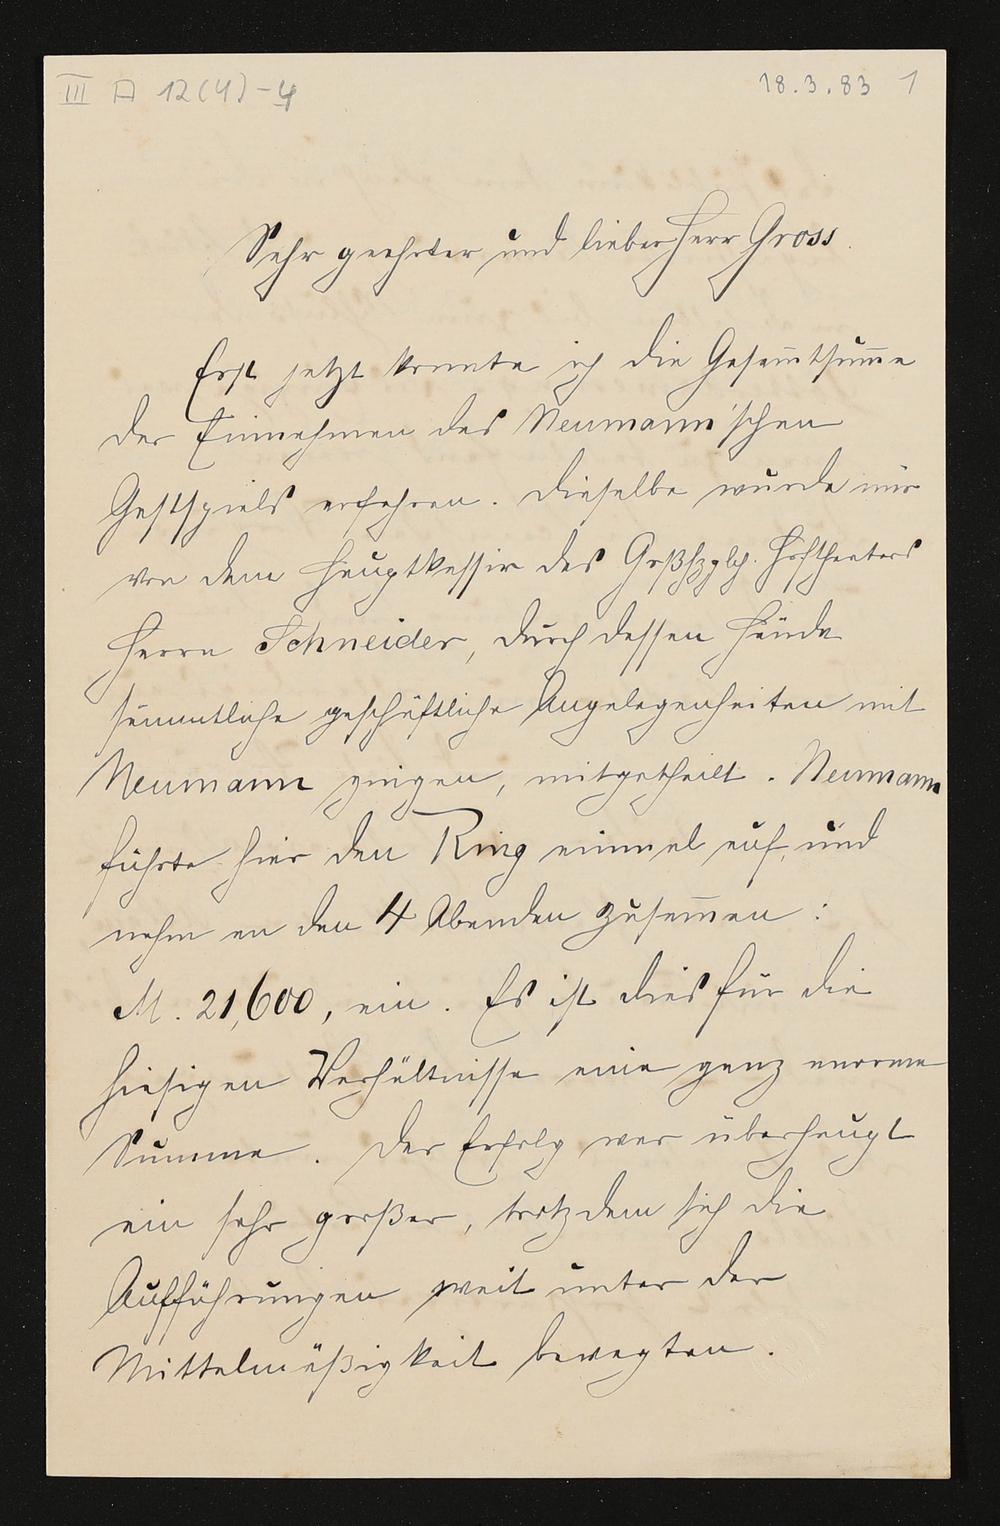 III A 12(4)-4
18.3.83 1
Sehr geehrter und lieber Herr Gross.
Erst jetzt konnte ich die Gesam̅tsum̅e
der Einnahmen des Neumann'schen
Gastspiels erfahren. Dieselbe wurde mir
von dem Hauptkassir des Großhzglch. Hoftheaters
Herrn Schneider, durch dessen Hände
sämmtliche geschäftliche Angelegenheiten mit
Neumann gingen, mitgetheilt. Neumann
führte hier den Ring einmal auf, und
nahm an den 4 Abenden zusam̅en:
M. 21,600, ein. Es ist dies für die
hiesigen Verhältnisse eine ganz enorme
Summe. Der Erfolg war überhaupt
ein sehr großer, trotzdem sich die
Aufführungen weit unter der
Mittelmäßigkeit bewegten.